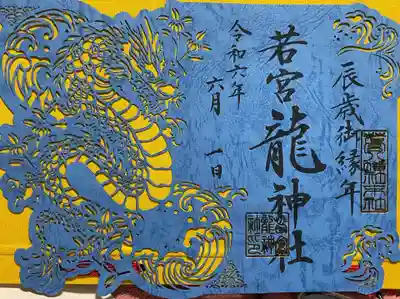 辰歳御縁年
若宮龍神社
令和六年
六月 一日